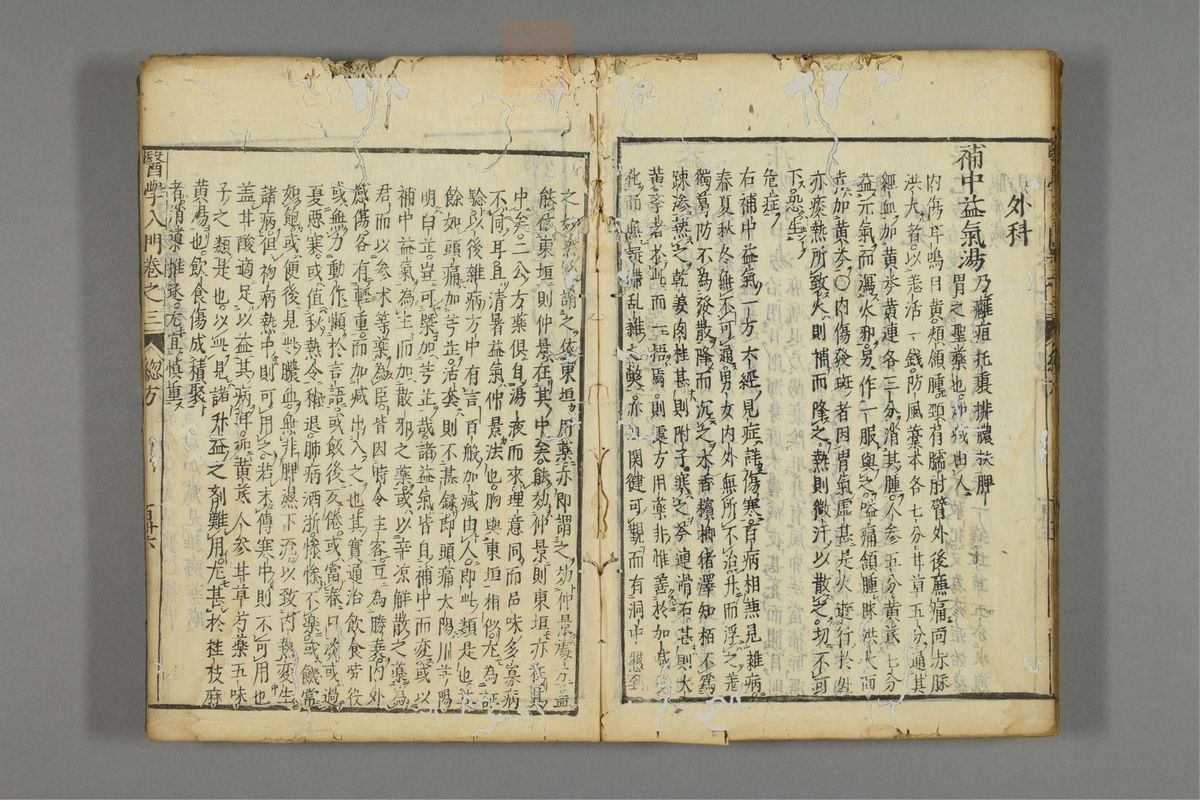 外科
補中益氣湯 乃癰疽托裏排膿救脾
胃之聖藥也加減由人
内傷耳鳴目黄頰頷腫頸有臑肘臂外後廉痛面赤脉
洪大者以羌活一錢防風藁本各七分甘草五分通其
經血加黄芩黄連各三分消其腫人參五分黄芪七分
益元氣而瀉火邪另作一服與之嗌痛頷腫脉洪大面
赤加黄芩○内傷發斑者因胃氣虚甚是火遊行於外
亦痰熱所致火則補而降之熱則微汗以散之切不可
下恐生
危症
右補中益氣一方六經見症詳傷寒百病相無見雜病
春夏秋冬無不可通男女内外無所不治升而浮之羌
獨葛防不為發散降而沉之木香檳榔猪澤知栢不為
踈滲熱之乾姜肉桂甚則附子寒之芩連滑石甚則大
黄季者於此而一悟焉則處方用藥非惟善於加減變
化而無泥滯乱雜之弊亦且関鍵可觀而有洞中
謂之依東垣用藥亦即謂之效仲景處方益
能依東垣則仲景在其中矣能效仲景則東垣亦在其
中矣二公方藥俱自湯液而來理意同而品味多寡病
不同耳且清暑益氣仲景法也胸與東垣相似尤為証
驗以後雜病方中有言百般加减由人即此類是也其
餘如頭痛加芎芷活蔞則不甚録即頭痛太陽川芎陽
明白芷豈可槩加芎芷哉諸益氣皆自補中而変或以
補中益氣為主而加散邪之藥或以辛凉解散之藥為
君而以參朮等藥為臣皆因時令主客互為勝衰内外
感傷各有輕重而加减出入之也其實通治飲食勞役
或無力動作懶於言語或飯後反倦或當春口淡或過
夏惡寒或值秋熱令稍退肺病洒淅慘慘不樂或饑常
如飽或便後見些膿血無非脾濕下流以致内熱変生
諸病但初病熱中則可用之若末傳寒中則不可用也
盖甘酸適足以益其病耳如黄芪人參甘草芍藥五味
子之類是也以此見諸升益之剤難用尤甚於桂枝麻
黄湯也飲食傷成積聚
者消導推逐尤宜慎重
醫學入門卷之三
總方